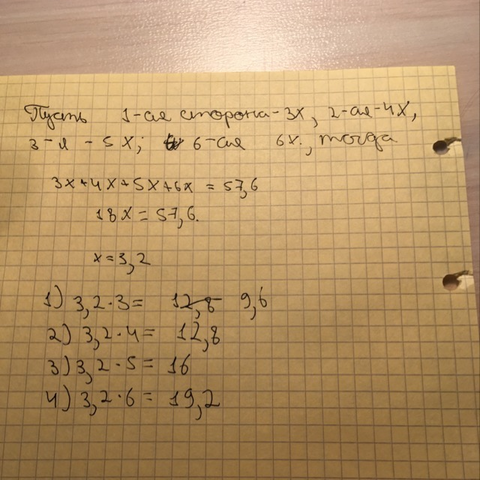 Пусть 1-ая сторона-3x, 2-ая-4x,
3-я - 5x; 6-ая 6x, тогда
3x+4x+5x+6x = 57,6
18x = 57,6.
x=3,2
1) 3,2·3= 12,8 9,6
2) 3,2·4= 12,8
3) 3,2·5= 16
4) 3,2·6= 19,2